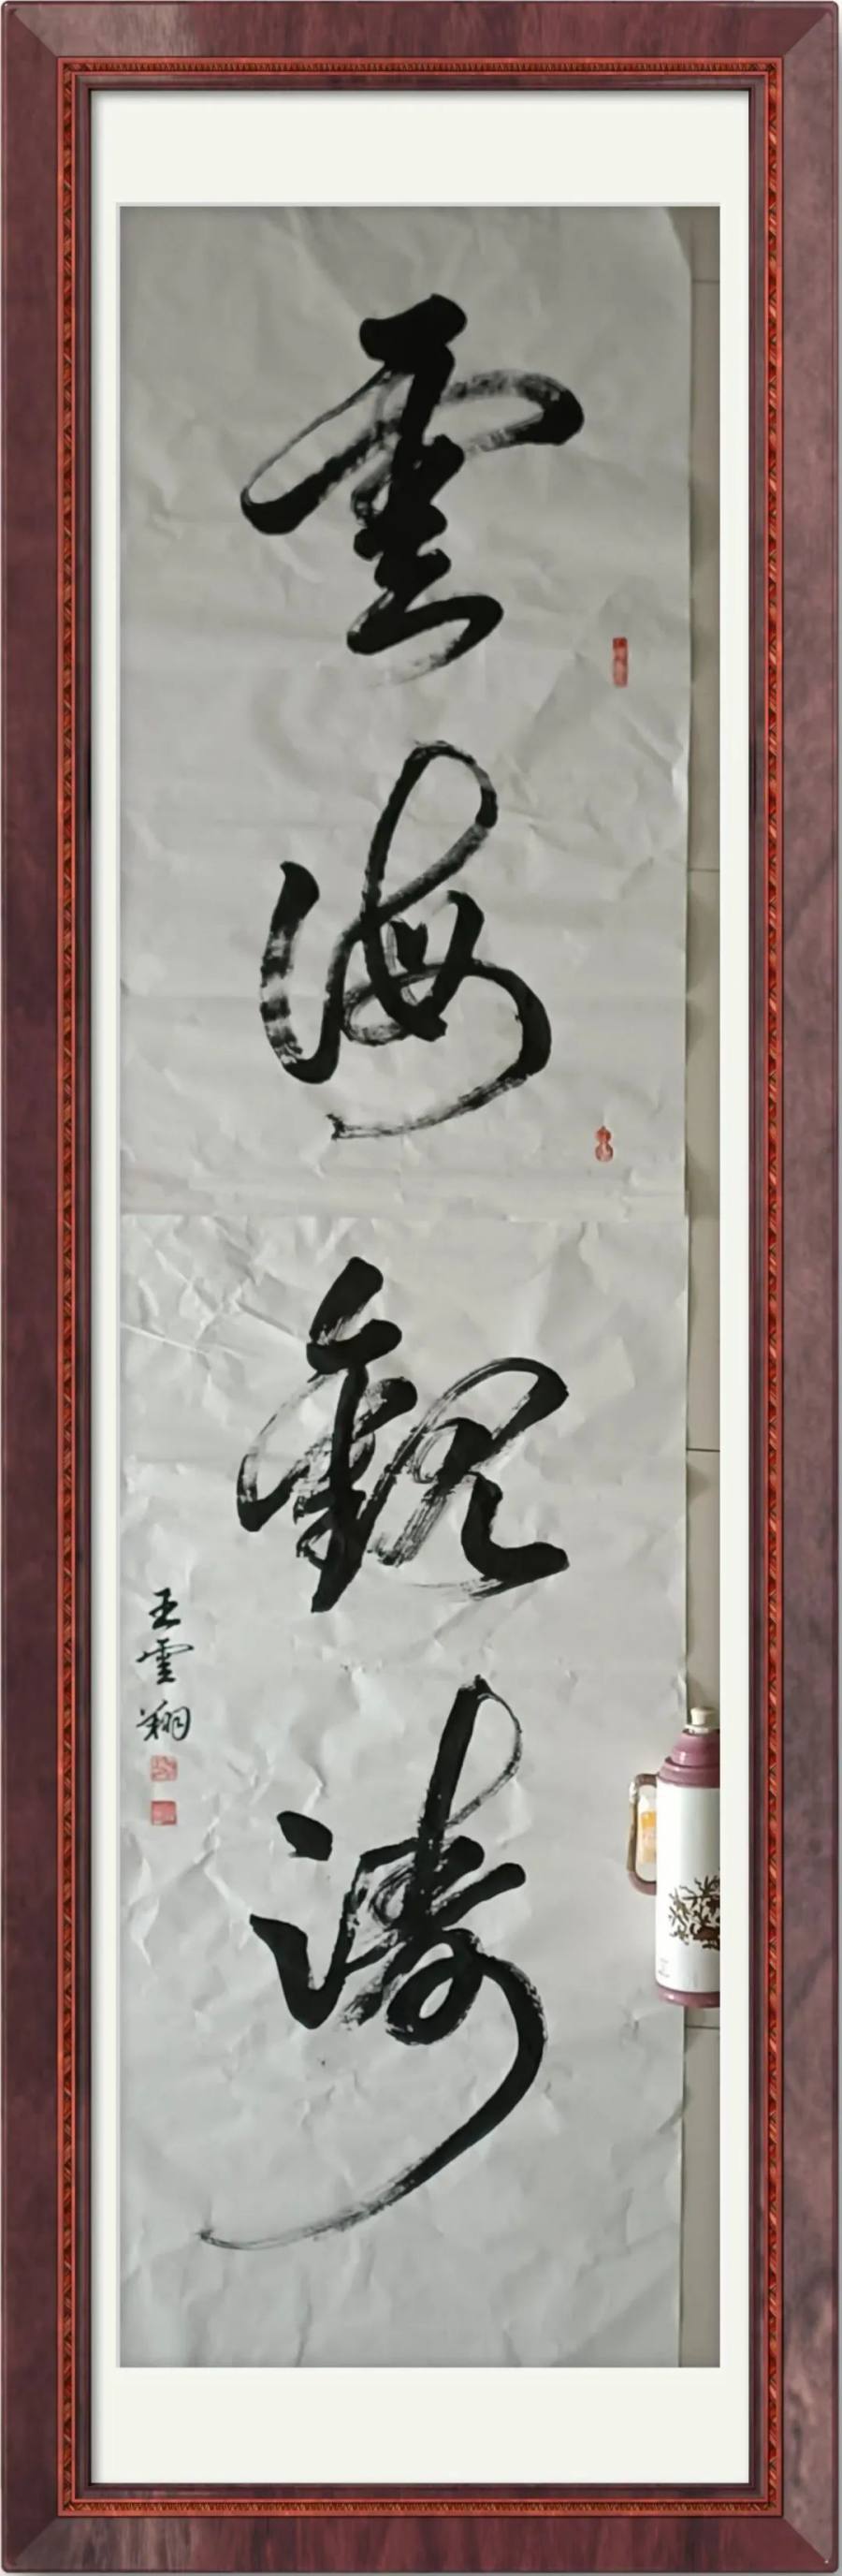 雲海觀濤
王雲翔